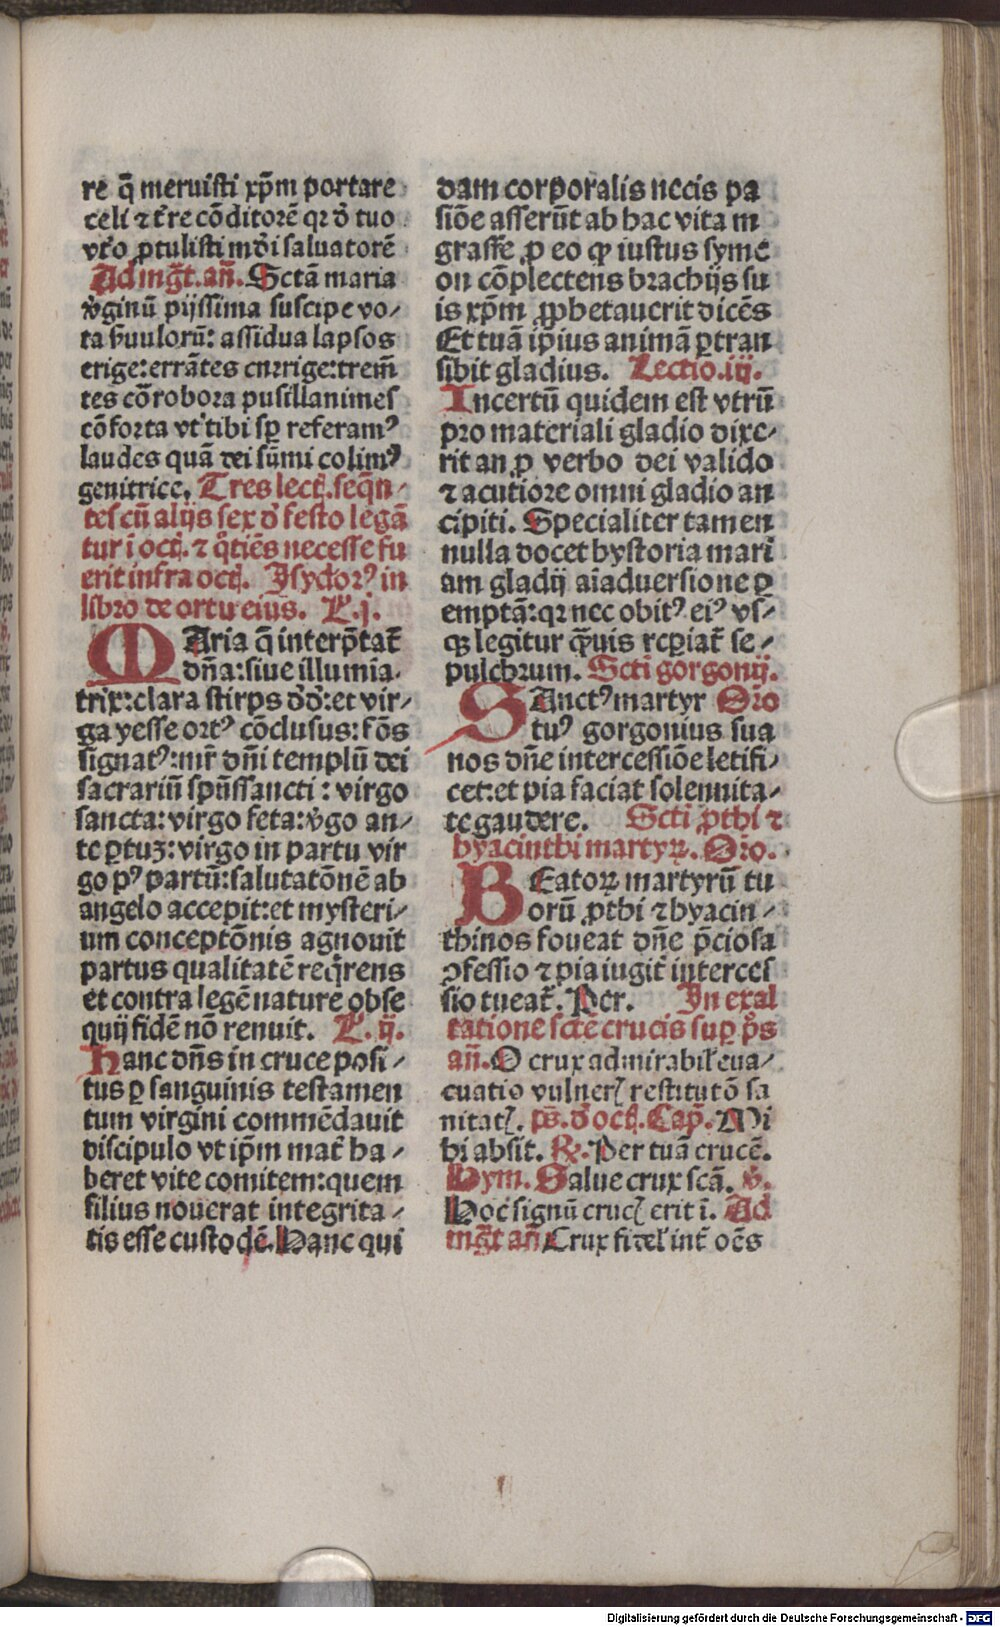 re q̄ meruisti xp̄m portare
celi ⁊ t̄re cōditorē qꝛ d̓ tuo
vt̓o ꝓtulisti mūdi saluatorē
Ad mgt̄. añ. Sctā maria
v̓ginū pijssima suscipe vo⸗
ta ẜuulorū: assidua lapsos
erige: errātes corrige: trem̄
tes cōrobora pusillanimes
cōforta vt tibi sꝑ referamꝰ
laudes quā dei sūmi colimꝰ
genitrice. Tres lect̄. seqn̄⸗
tes cū alijs sex d̓ festo legā
tur ī oct̄. ⁊ q̓tiēs necesse fu
erit infra oct̄. Jsydorꝰ in
libro de ortu eius. L. j.
MAria q̄ interp̄tat̄
dn̄a: siue illumia⸗
trix: clara stirps d̓d̓: et vir⸗
ga yesse ortꝰ cōclusus: fōs
signatꝰ: mr̄ dn̄i templū dei
sacrariū spūssancti: virgo
sancta: virgo feta: v̓go an⸗
te ꝑtuꝫ: virgo in partu vir
go pꝰ partū: salutatōnē ab
angelo accepit: et mysteri⸗
um conceptōnis agnouit
partus qualitatē req̓rens
et contra legē nature obse
quij fidē nō renuit. L. ij.
Hanc dn̄s in cruce posi⸗
tus ꝑ sanguinis testamen
tum virgini commēdauit
discipulo vt ip̄m mat̄ ha⸗
beret vite comitem: quem
filius nouerat integrita⸗
tis esse custodē. Hanc qui
dam corporalis necis pa
siōe asserūt ab hac vita m
grasse ꝓ eo ꝙ iustus syme
on cōplectens brachijs su
is xp̄m ꝓphetauerit dicēs
Et tuā ip̄ius animā ꝑtran
sibit gladius. Lectio. iij.
Incertū quidem est vtrū
pro materiali gladio dixe⸗
rit an ꝓ verbo dei valido
⁊ acutiore omni gladio an
cipiti. Specialiter tamen
nulla docet hystoria mari
am gladij aīaduersione ꝑ
emptā: qꝛ nec obitꝰ eiꝰ vs̄⸗
qꝫ legitur q̄uis reꝑiat̄ se⸗
pulchrum. Scti gorgonij.
SAnctꝰ martyr Oro
tuꝰ gorgonius sua
nos dn̄e intercessiōe letifi⸗
cet: et pia faciat solennita⸗
te gaudere. Scti ꝓthi ⁊
hyacinthi martyꝝ. Oro.
BEatoꝝ martyrū tu
orū ꝓthi ⁊ hyacin⸗
thi nos foueat dn̄e p̄ciosa
ꝓfessio ⁊ pia iugit̄ interces
sio tueat̄. Per. In exal
tatione sctē crucis suꝑ p̓s
añ. O crux admirabil̄ eua⸗
cuatio vulner̄ restitutō sa
nitat̄. ps̄. d̓ oct̄. Cap̄. Mi
hi absit. ℟. Per tuā crucē.
Hym. Salue crux scā. v̓.
Hoc signū cruc̄ erit ī. Ad
mgt̄ añ Crux fidel̄ int̄ oēs
Digitalisierung gefördert durch die Deutsche Forschungsgemeinschaft - DFG